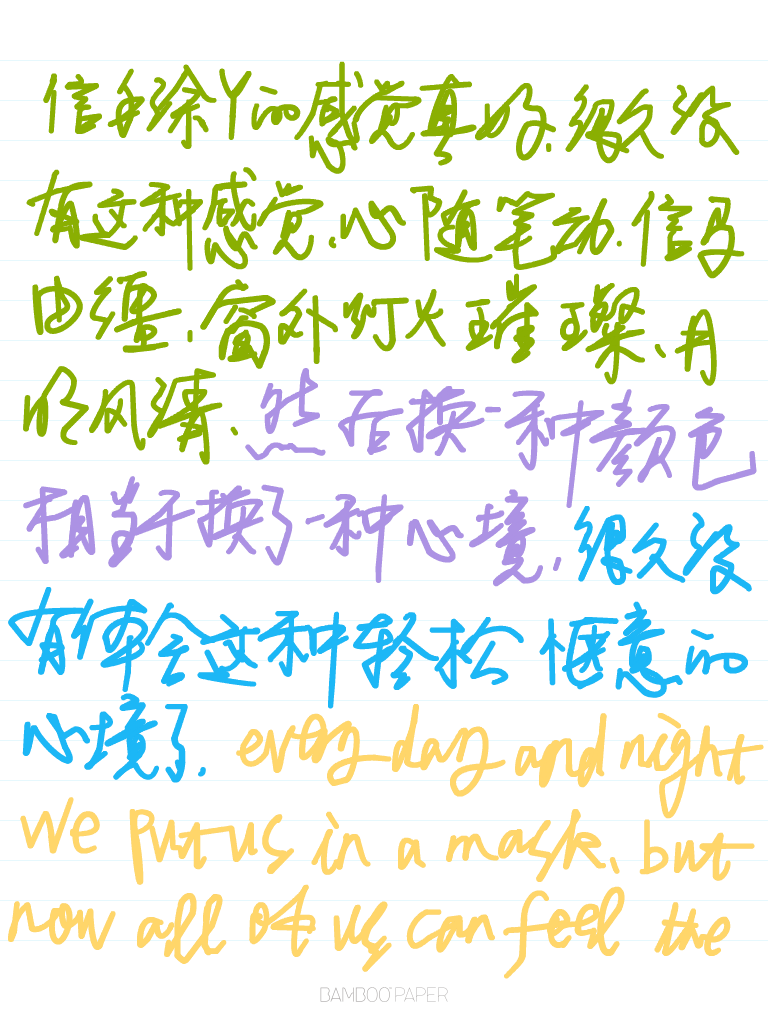 信手涂丫的感觉真好,很久没
有这种感觉,心随笔动.信马
由缰,窗外灯火璀璨、月
明风清、然后换一种颜色
相当于换了一种心境,很久没
有体会这种轻松惬意的
心境了, every day and night
We put us in a mask, but
now all of us can feel the
BAMBOO PAPER